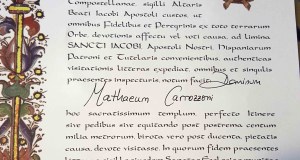 Compostellanae, sigilli Altaris
Beati Jacobi Apostoli custos, ut
omnibus Fidelibus et Peregrinis ex toto terrarum
Orbe, devotionis affectu vel voti causa, ad limina
SANCTI IACOBI Apostoli Nostri, Hispaniarum
Patroni et Tutelaris convenientibus, authenticas
visitationis litteras expediat, omnibus et singulis
praesentes inspecturis, notum facit: Dominum
Mathaeum Carrozzoni
hoc sacratissimum templum, perfecto itinere
sive pedibus sive equitando post postrema centum
milia metrorum, birota vero post ducenta, pietatis
causa, devote visitasse. In quorum fidem praesentes